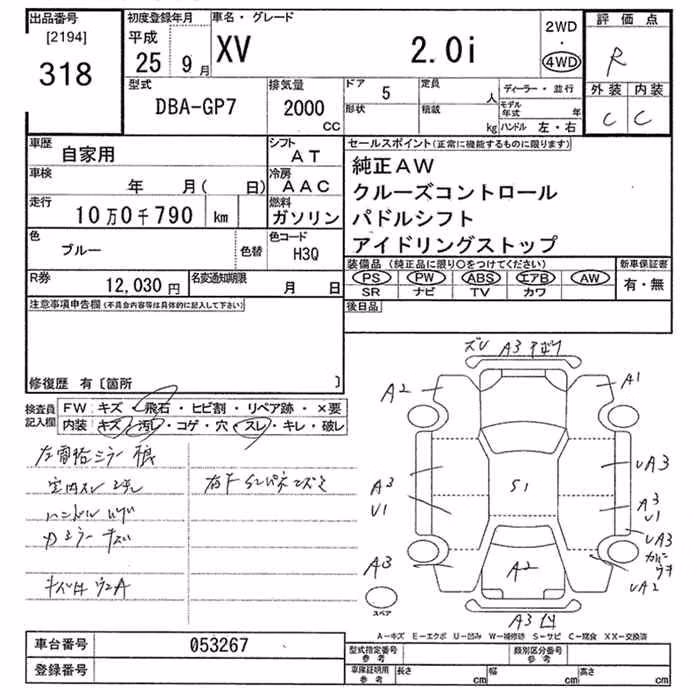 出品番号
[2194]
318
初度登録年月
平成
25 9月
車名・グレード
XV 2.0i
2WD
・
4WD
評価点
R
外装 内装
C C
型式
DBA-GP7
排気量
2000
CC
ドア 5
形状
定員 人
積載 kg
ディーラー・並行
モデル年式 年
ハンドル 左・右
車歴 自家用
シフト AT
車検 年 月( 日)
冷房 AAC
走行 10万0千790 km
燃料 ガソリン
色 ブルー 色替
色コード H3Q
R券 12,030円
名変通知期限 月 日
セールスポイント(正常に機能するものに限ります)
純正AW
クルーズコントロール
パドルシフト
アイドリングストップ
装備品(純正品に限り○をつけてください)
PS PW ABS エアB AW
SR ナビ TV カワ
新車保証書
有・無
後日品
注意事項申告欄(不具合内容等は具体的に記入して下さい)
修復歴 有〔箇所 〕
検査員記入欄
FW キズ・飛石・ヒビ割・リペア跡・×要
内装 キズ・汚れ・コゲ・穴・スレ・キレ・破レ
A3
A2
A1
A3
U1
S1
UA3
A3
U1
UA3
A3
A2
UA2
スペア
A3 凹
A−キズ E−エクボ U−凹み W−補修跡 S−サビ C−腐食 XX−交換済
車台番号 053267
登録番号
型式指定番号 参考
類別区分番号 参考
車庫証明用 参考
長さ cm
幅 cm
高さ cm